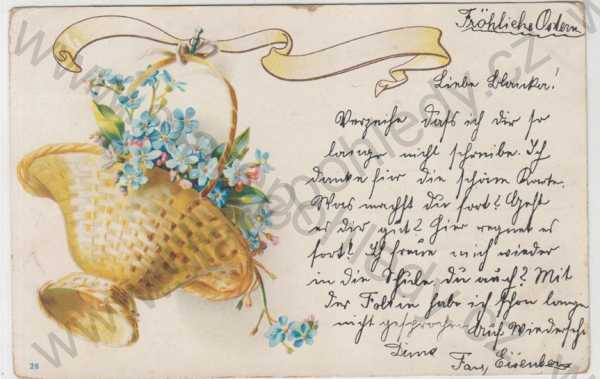 Fröhliche Ostern
Liebe Blanka!
Verzeihe daſs ich dir so
lange nicht schreibe. Ich
danke für die schöne Karte.
Was machſt du fort? Geht
es dir gut? Hier regnet es
fort! Ich freue mich wieder
in die Schule, du auch? Mit
der Foltin habe ich ſchon lange
nicht gesprochen. Auf Wiederseh.
Deine
Eisenberg
28